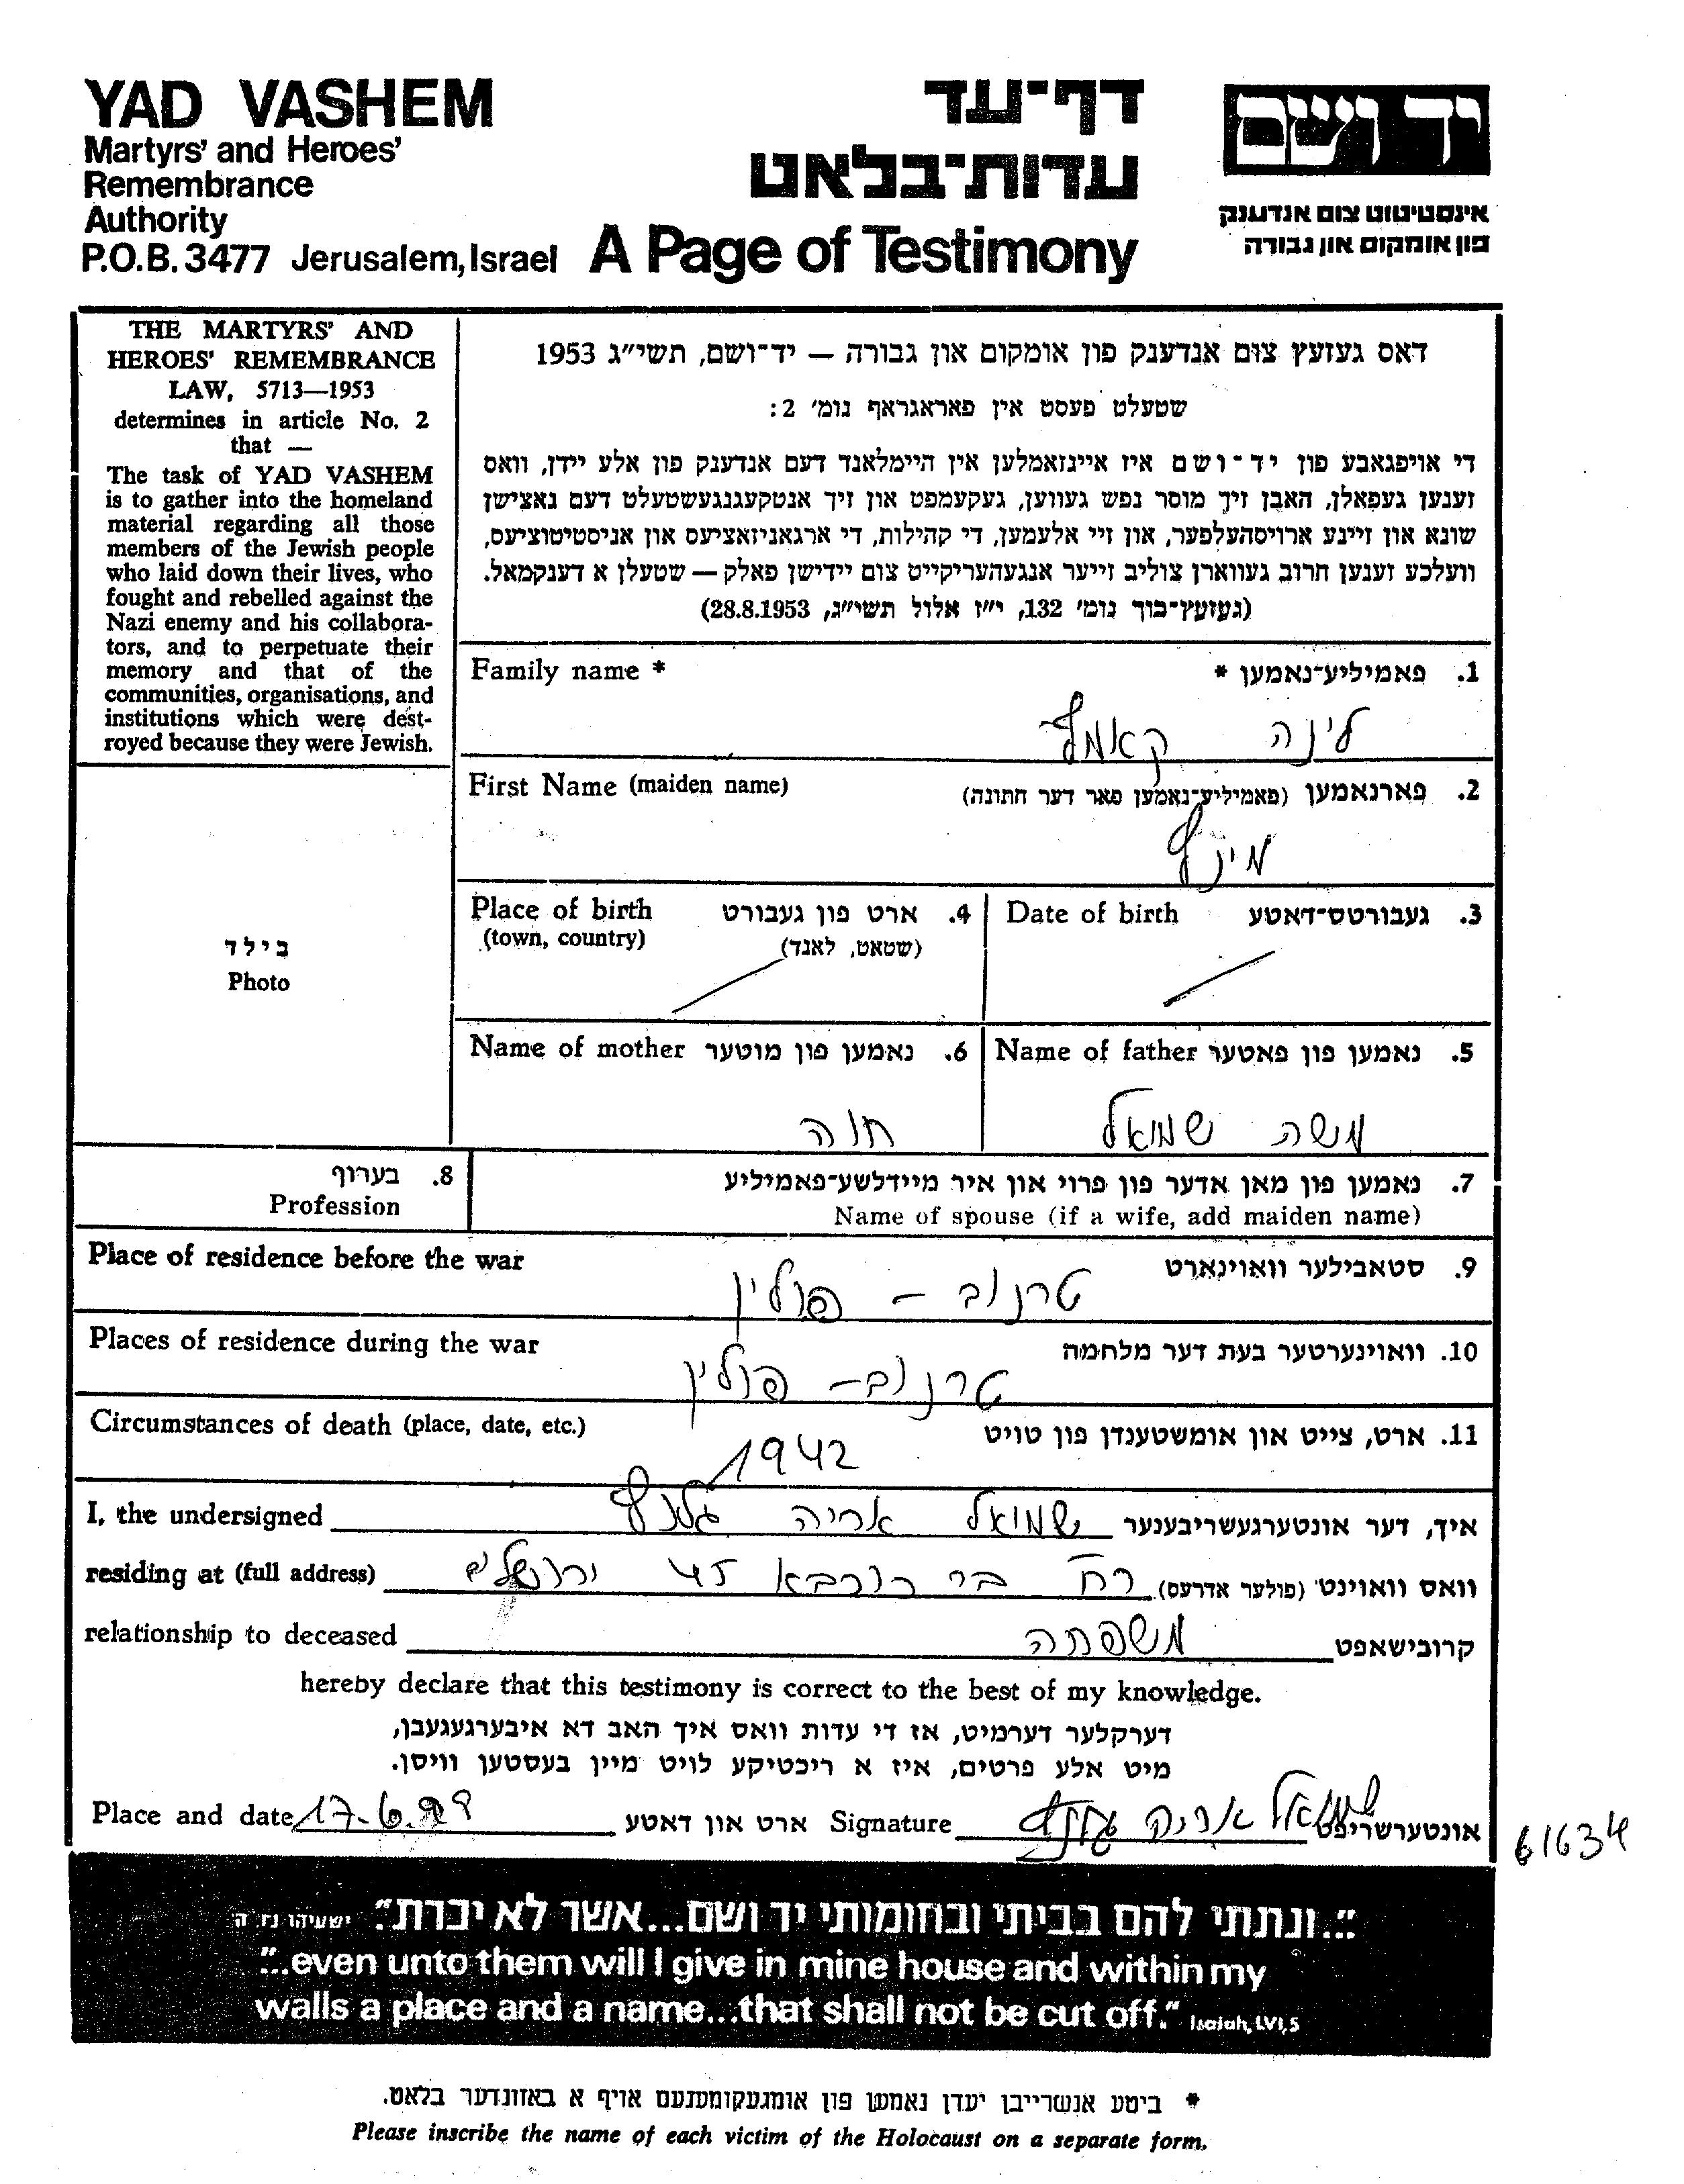 YAD VASHEM
Martyrs' and Heroes'
Remembrance
Authority
P.O.B. 3477 Jerusalem, Israel
דף-עד
עדות-בלאט
A Page of Testimony
יד ושם
אינסטיטוט צום אנדענק
פון אומקום און גבורה
THE MARTYRS' AND
HEROES' REMEMBRANCE
LAW, 5713—1953
determines in article No. 2
that —
The task of YAD VASHEM
is to gather into the homeland
material regarding all those
members of the Jewish people
who laid down their lives, who
fought and rebelled against the
Nazi enemy and his collabora-
tors, and to perpetuate their
memory and that of the
communities, organisations, and
institutions which were dest-
royed because they were Jewish.
דאס געזעץ צום אנדענק פון אומקום און גבורה — יד-ושם, תשי"ג 1953
שטעלט פעסט אין פאראגראף נומ' 2:
די אויפגאבע פון יד-ושם איז איינזאמלען אין היימלאנד דעם אנדענק פון אלע יידן, וואס
זענען געפאלן, האבן זיך מוסר נפש געווען, געקעמפט און זיך אנטקעגנגעשטעלט דעם נאצישן
שונא און זיינע ארויסהעלפער, און זיי אלעמען, די קהילות, די ארגאניזאציעס און אניסטיטוציעס,
וועלכע זענען חרוב געווארן צוליב זייער אנגעהעריקייט צום יידישן פאלק — שטעלן א דענקמאל.
(געזעץ-בוך נומ' 132, י"ז אלול תשי"ג, 28.8.1953)
Family name * 1. פאמיליע-נאמען *
לינה קאמף
First Name (maiden name) 2. פארנאמען (פאמיליע-נאמען פאר דער חתונה)
בילד
Photo
Place of birth 4. ארט פון געבורט
(town, country) (שטאט, לאנד)
Date of birth 3. געבורטס-דאטע
Name of mother 6. נאמען פון מוטער
חוה
Name of father 5. נאמען פון פאטער
משה שמואל
8. בערוף
Profession
7. נאמען פון מאן אדער פון פרוי און איר מיידלשע-פאמיליע
Name of spouse (if a wife, add maiden name)
Place of residence before the war 9. סטאבילער וואוינארט
טרנוב - פולין
Places of residence during the war 10. וואוינערטער בעת דער מלחמה
טרנוב - פולין
Circumstances of death (place, date, etc.) 11. ארט, צייט און אומשטענדן פון טויט
1942
I, the undersigned שמואל אריה איך, דער אונטערגעשריבענער
residing at (full address) רח בר כוכבא 45 ירושלים וואס וואוינט (פולער אדרעס)
relationship to deceased משפחה קרובישאפט
hereby declare that this testimony is correct to the best of my knowledge.
דערקלער דערמיט, אז די עדות וואס איך האב דא איבערגעגעבן,
מיט אלע פרטים, איז א ריכטיקע לויט מיין בעסטען וויסן.
Place and date 17.6.99 ארט און דאטע Signature שמואל אריה אונטערשריפט
61634
"...ונתתי להם בביתי ובחומותי יד ושם...אשר לא יכרת". ישעיהו נו ה
"...even unto them will I give in mine house and within my
walls a place and a name...that shall not be cut off." Isaiah, LVI, 5
* ביטע אנשרייבן יעדן נאמען פון אומגעקומענעם אויף א באזונדער בלאט.
Please inscribe the name of each victim of the Holocaust on a separate form.